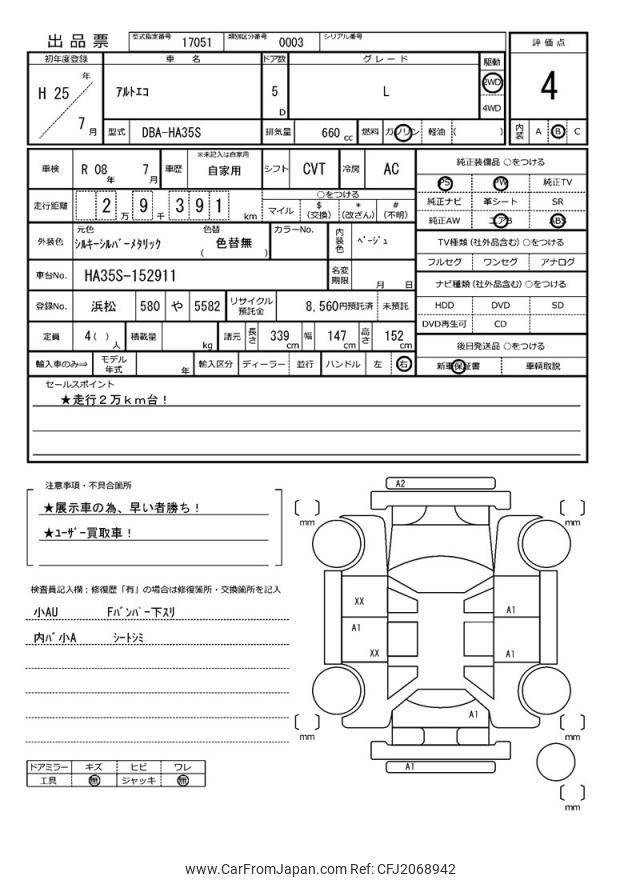 出品票
型式指定番号 17051 類別区分番号 0003 シリアル番号
初年度登録 車名 ドア数 グレード 駆動 評価点
H 25 年 7 月 ｱﾙﾄｴｺ 5 D L 2WD 4WD 4
型式 DBA-HA35S 排気量 660 cc 燃料 ガソリン 軽油 ( ) 内装 A B C
車検 R 08 年 7 月 車歴 ※未記入は自家用 自家用 シフト CVT 冷房 AC
走行距離 2 万 9 千 3 9 1 km ○をつける
マイル $ (交換) * (改ざん) # (不明)
外装色 元色 ｼﾙｷｰｼﾙﾊﾞｰﾒﾀﾘｯｸ 色替 ( 色替無 ) カラーNo. 内装色 ﾍﾞｰｼﾞｭ
車台No. HA35S-152911 名変期限 月 日
登録No. 浜松 580 や 5582 リサイクル預託金 8,560円預託済 未預託
定員 4( ) 人 積載量 kg 諸元 長さ 339 cm 幅 147 cm 高さ 152 cm
輸入車のみ⇒ モデル年式 年 輸入区分 ディーラー 並行 ハンドル 左 右
純正装備品 ○をつける
PS PW 純正TV
純正ナビ 革シート SR
純正AW エアB ABS
TV種類 (社外品含む) ○をつける
フルセグ ワンセグ アナログ
ナビ種類 (社外品含む) ○をつける
HDD DVD SD
DVD再生可 CD
後日発送品 ○をつける
新車保証書 車輌取説
セールスポイント
★走行２万ｋｍ台！
注意事項・不具合箇所
★展示車の為、早い者勝ち！
★ﾕｰｻﾞｰ買取車！
検査員記入欄：修復歴「有」の場合は修復箇所・交換箇所を記入
小AU Fﾊﾞﾝﾊﾟｰ下ｽﾘ
内ﾊﾞ小A ｼｰﾄｼﾐ
ドアミラー キズ ヒビ ワレ
工具 無 ジャッキ 無
A2
mm
mm
XX
A1
A1
XX
A1
A1
mm
mm
A1
mm
www.CarFromJapan.com Ref: CFJ2068942